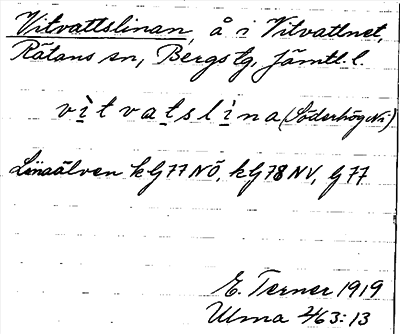 Vitvattslinan, å i Vitvattnet,
Rätans sn, Bergs tg, Jämtl. l.
vìtvatslìna (Söderhög Nì)
Linaälven k G 77 NÖ, k G 78 NV, G 77
E. Terner 1919
Ulma 463:13